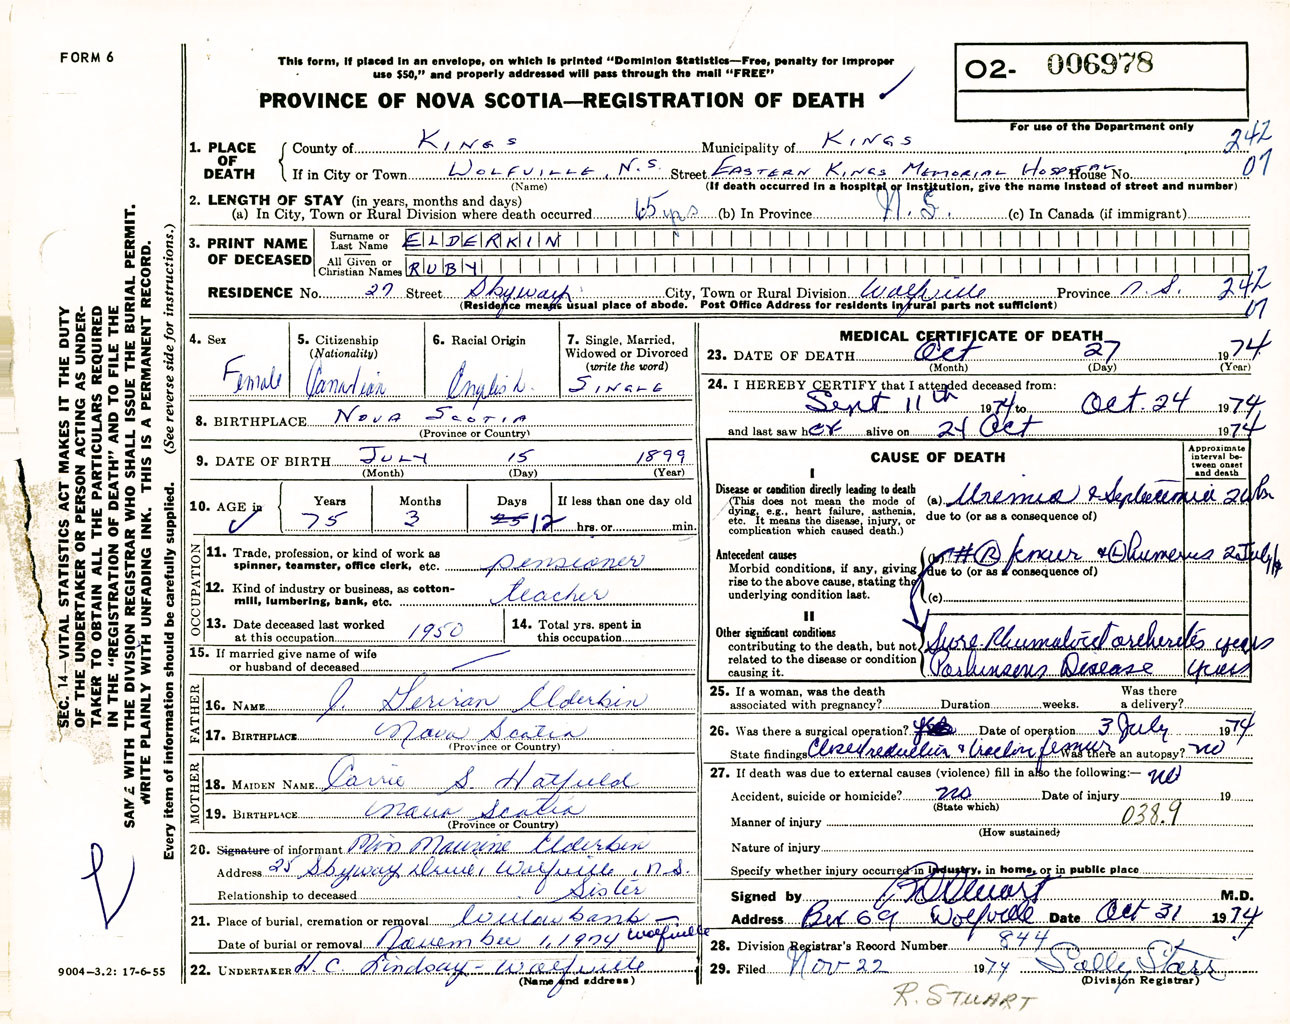 FORM 6
This form, if placed in an envelope, on which is printed "Dominion Statistics—Free, penalty for improper
use $50," and properly addressed will pass through the mail "FREE"
O2- 006978
PROVINCE OF NOVA SCOTIA—REGISTRATION OF DEATH
For use of the Department only
1. PLACE OF DEATH County of KINGS Municipality of KINGS 242
If in City or Town WOLFVILLE, N.S. Street EASTERN KINGS MEMORIAL HOSPITAL House No. 07
(Name) (If death occurred in a hospital or institution, give the name instead of street and number)
2. LENGTH OF STAY (in years, months and days)
(a) In City, Town or Rural Division where death occurred 65 yrs (b) In Province N.S. (c) In Canada (if immigrant)
3. PRINT NAME OF DECEASED Surname or Last Name ELDERKIN
All Given or Christian Names RUBY
RESIDENCE No. 27 Street Skyway City, Town or Rural Division Wolfville Province N.S. 242
(Residence means usual place of abode. Post Office Address for residents in rural parts not sufficient) 07
4. Sex Female
5. Citizenship (Nationality) Canadian
6. Racial Origin English
7. Single, Married, Widowed or Divorced (write the word) SINGLE
8. BIRTHPLACE NOVA SCOTIA
(Province or Country)
9. DATE OF BIRTH JULY 15 1899
(Month) (Day) (Year)
10. AGE in Years 75 Months 3 Days 25 12 If less than one day old hrs. or min.
OCCUPATION
11. Trade, profession, or kind of work as spinner, teamster, office clerk, etc. pensioner
12. Kind of industry or business, as cotton-mill, lumbering, bank, etc. teacher
13. Date deceased last worked at this occupation 1950
14. Total yrs. spent in this occupation
15. If married give name of wife or husband of deceased
FATHER
16. NAME J. Elderkin
17. BIRTHPLACE Nova Scotia
(Province or Country)
MOTHER
18. MAIDEN NAME Carrie S. Hatfield
19. BIRTHPLACE Nova Scotia
(Province or Country)
20. Signature of informant Miss Maurine Elderkin
Address 25 Skyway Drive, Wolfville, N.S.
Relationship to deceased Sister
21. Place of burial, cremation or removal Willowbank - Wolfville
Date of burial or removal November 1, 1974
22. UNDERTAKER H.C. Lindsay - Wolfville
(Name and address)
MEDICAL CERTIFICATE OF DEATH
23. DATE OF DEATH Oct 27 1974
(Month) (Day) (Year)
24. I HEREBY CERTIFY that I attended deceased from:
Sept 11th 1974 to Oct. 24 1974
and last saw her alive on 24 Oct 1974
CAUSE OF DEATH
Approximate interval between onset and death
I
Disease or condition directly leading to death
(This does not mean the mode of dying, e.g., heart failure, asthenia, etc. It means the disease, injury, or complication which caused death.)
(a) Uremia & Septicemia
due to (or as a consequence of)
Antecedent causes
Morbid conditions, if any, giving rise to the above cause, stating the underlying condition last.
(b) # (R) femur & (L) humerus 2 July
due to (or as a consequence of)
(c)
II
Other significant conditions
contributing to the death, but not related to the disease or condition causing it.
Rheumatoid arthritis years
Parkinsons Disease years
25. If a woman, was the death associated with pregnancy? Duration weeks. Was there a delivery?
26. Was there a surgical operation? yes Date of operation 3 July 1974
State findings Closed reduction & traction femur Was there an autopsy? no
27. If death was due to external causes (violence) fill in also the following:— no
Accident, suicide or homicide? no Date of injury 19
(State which)
Manner of injury 038.9
(How sustained)
Nature of injury
Specify whether injury occurred in industry, in home, or in public place
Signed by Stuart M.D.
Address Box 69 Wolfville Date Oct 31 1974
28. Division Registrar's Record Number 844
29. Filed Nov 22 1974 Sally Starr
(Division Registrar)
R. STUART
SEC. 14—VITAL STATISTICS ACT MAKES IT THE DUTY
OF THE UNDERTAKER OR PERSON ACTING AS UNDER-
TAKER TO OBTAIN ALL THE PARTICULARS REQUIRED
IN THE "REGISTRATION OF DEATH" AND TO FILE THE
SAME WITH THE DIVISION REGISTRAR WHO SHALL ISSUE THE BURIAL PERMIT.
WRITE PLAINLY WITH UNFADING INK. THIS IS A PERMANENT RECORD.
Every item of information should be carefully supplied. (See reverse side for instructions.)
9004—3.2: 17-6-55